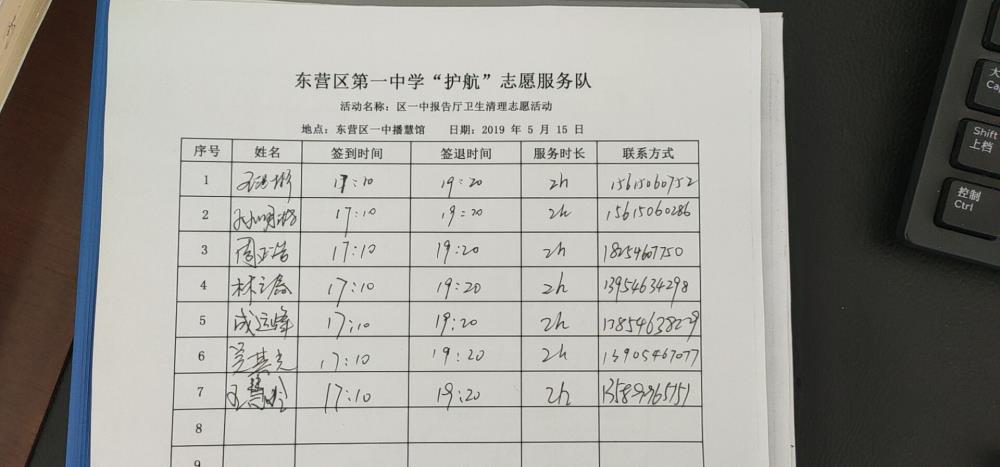 东营区第一中学“护航”志愿服务队
活动名称：区一中报告厅卫生清理志愿活动
地点：东营区一中播慧馆 日期：2019 年 5 月 15 日
序号 姓名 签到时间 签退时间 服务时长 联系方式
1 17:10 19:20 2h 15615060752
2 17:10 19:20 2h 15615060286
3 周正浩 17:10 19:20 2h 18254607750
4 17:10 19:20 2h 13954634298
5 成运峰 17:10 19:20 2h 13854638229
6 17:10 19:20 2h 13905467077
7 17:10 19:20 2h
8
9
大
Cap
Shift
上档
控制
Ctrl